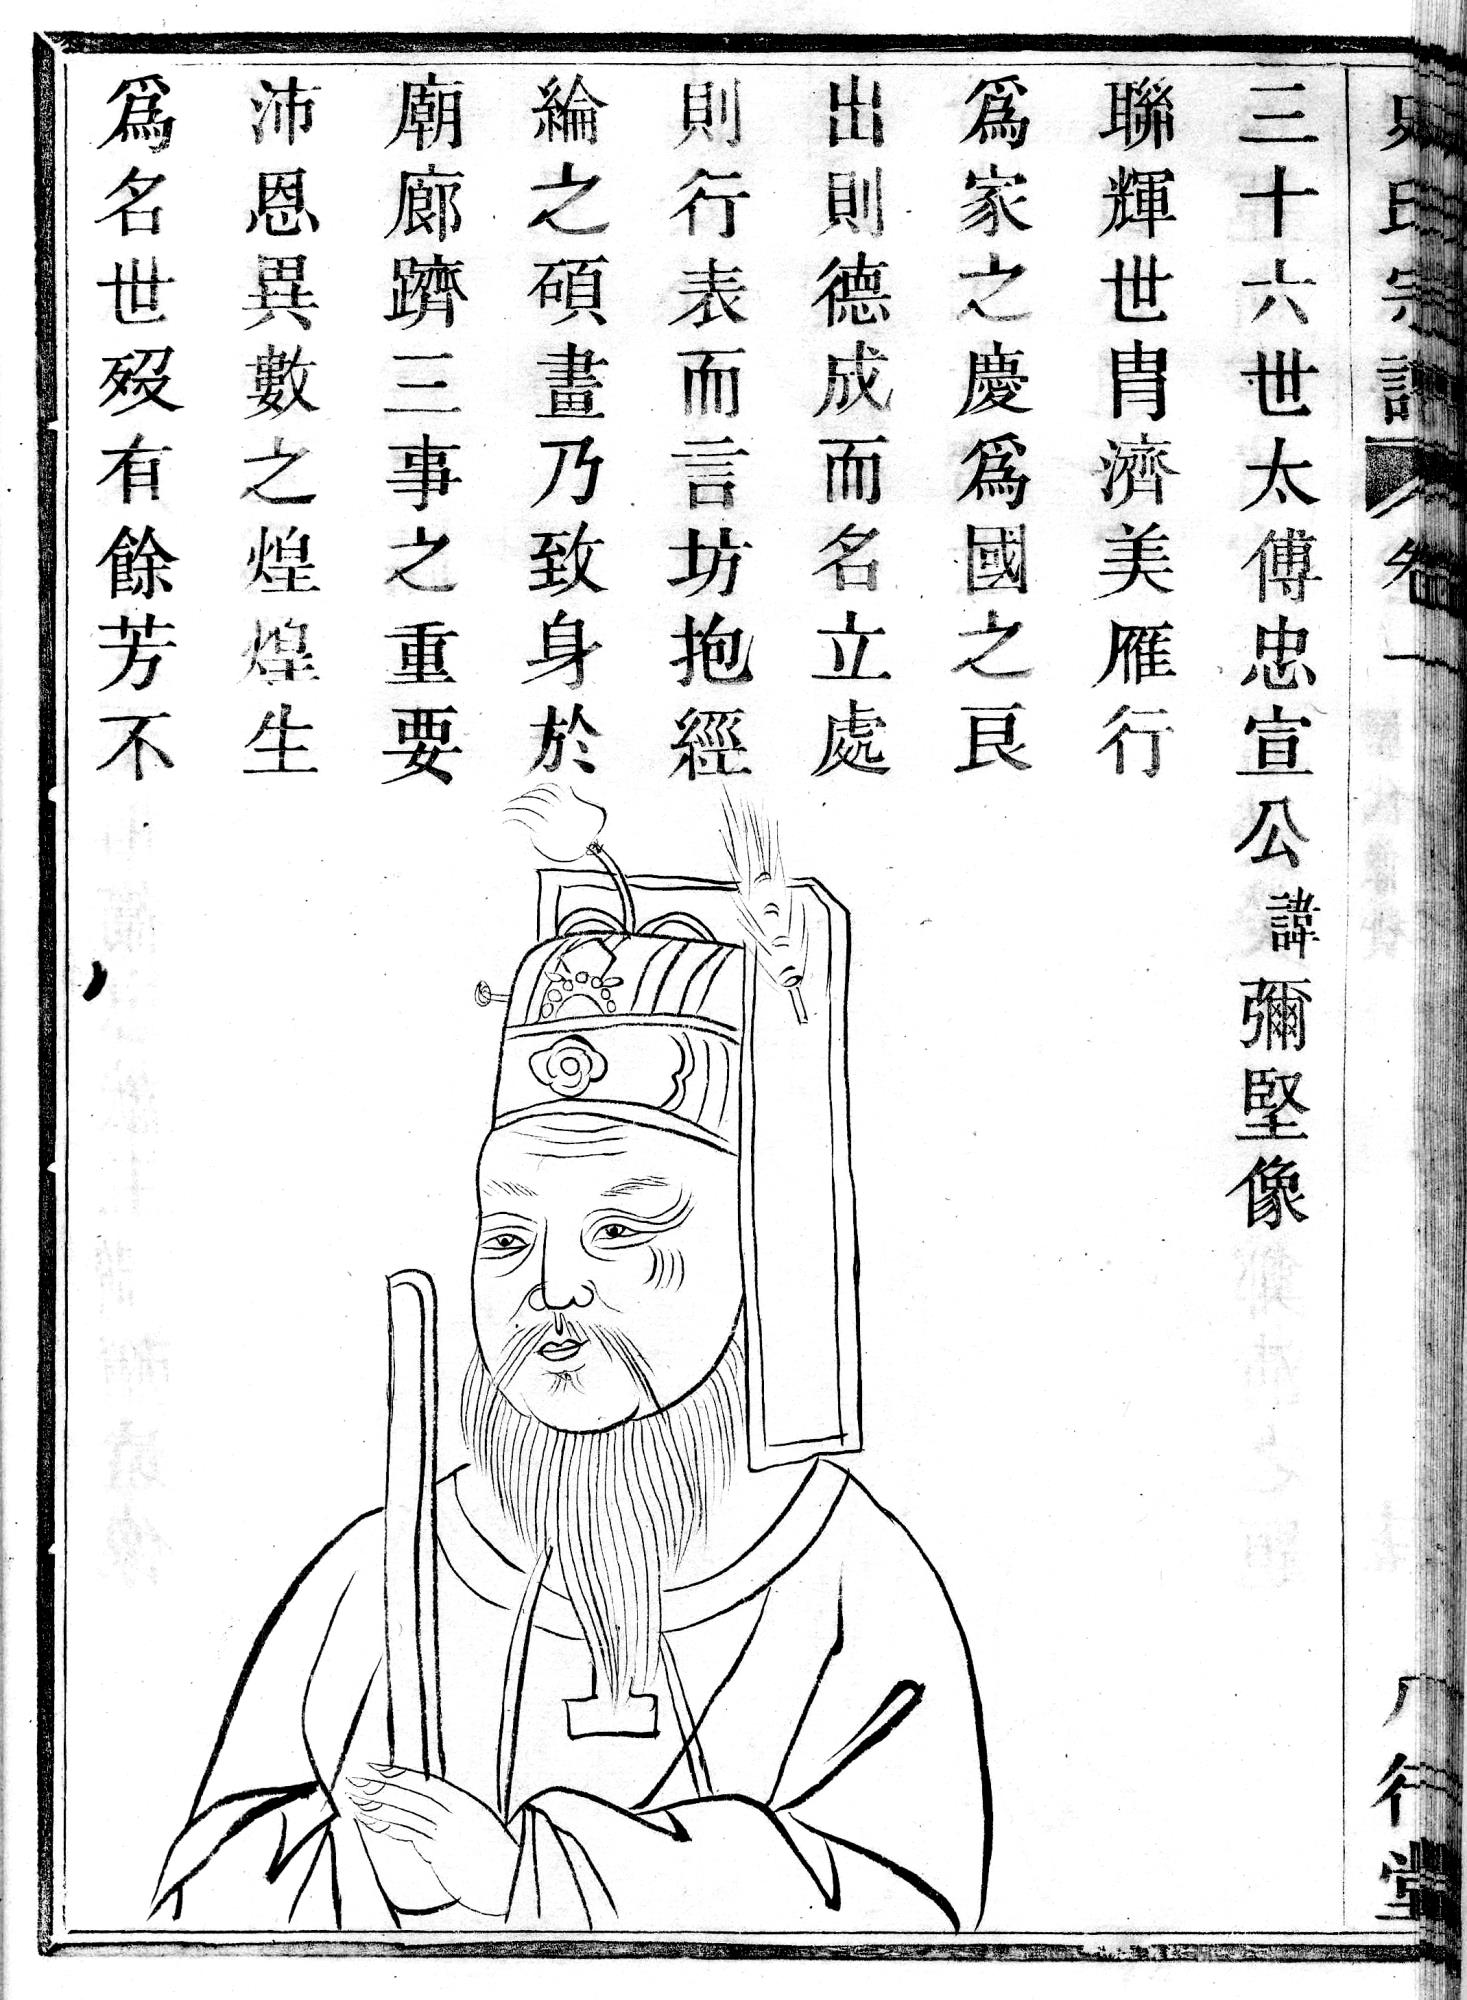 史氏宗譜 卷一 八行堂
三十六世太傅忠宣公諱彌堅像
聯輝世冑濟美雁行
為家之慶為國之良
出則德成而名立處
則行表而言坊抱經
綸之碩畫乃致身於
廟廊躋三事之重要
沛恩異數之煌煌生
為名世歿有餘芳不